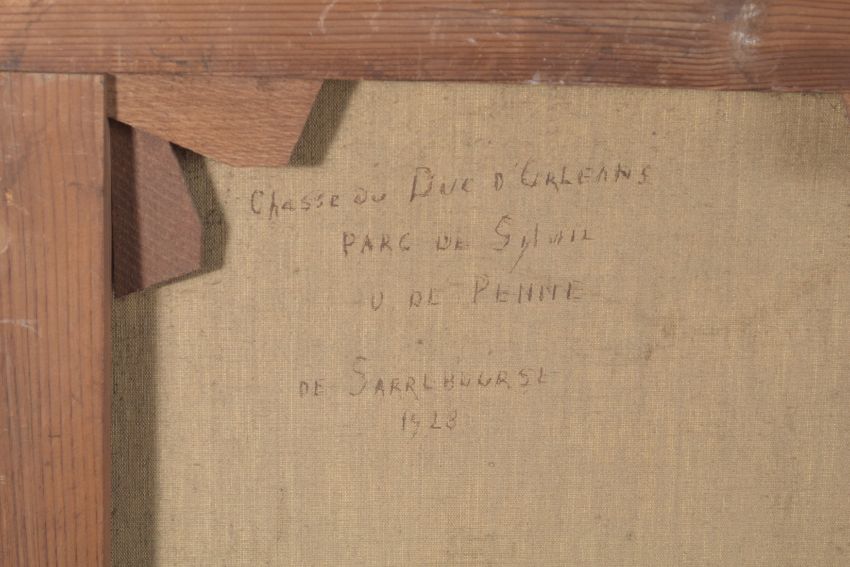 Chasse du Duc d'Orleans
PARC DE Sylvie
DE PENNE
DE SARREBOURSE
1928